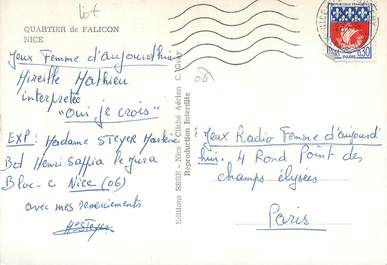 lot
QUARTIER de FALICON
NICE
Jeux Femme d'aujourdhui
Mireille Mathieu
interpretée
"Oui je crois"
EXP: Madame STEYER
Bd Henri Sappia le Jura
Bloc-C Nice (06)
avec mes remerciements
HSteyer
Editions SEBE - Nice - Cliché Aérien
Reproduction Interdite
06
NICE
0,30
PARIS
Jeux Radio Femme d'aujourd
hui. 4 Rond Point des
champs élysées
Paris